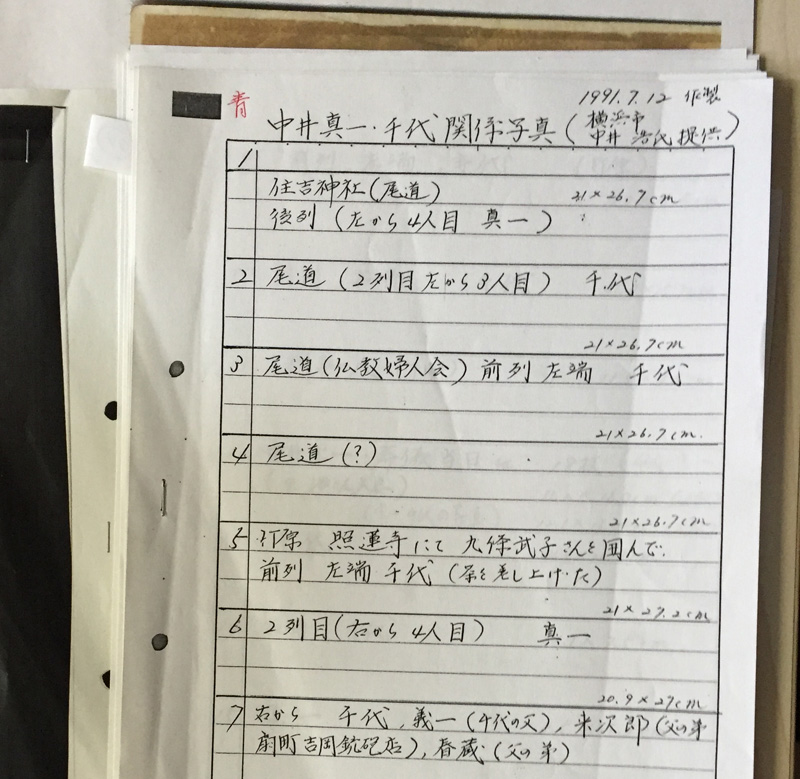 青
1991.7.12 作製
中井真一・千代関係写真(横浜市
中井 浩氏提供)
1
住吉神社(尾道) 21×26.7cm
後列(左から4人目 真一)
2 尾道(2列目左から3人目) 千代
21×26.7cm
3 尾道(仏教婦人会)前列 左端 千代
21×26.7cm.
4 尾道(?)
21×26.7cm
5 竹原 照蓮寺にて 九條武子さんを囲んで.
前列 左端 千代(茶を差し上げた)
21×27.2cm
6 2列目(右から4人目) 真一
20.9×27cm
7 右から 千代、義一(千代の父)、米次郎(父の弟
扇町吉岡銃砲店)、春蔵(父の弟)